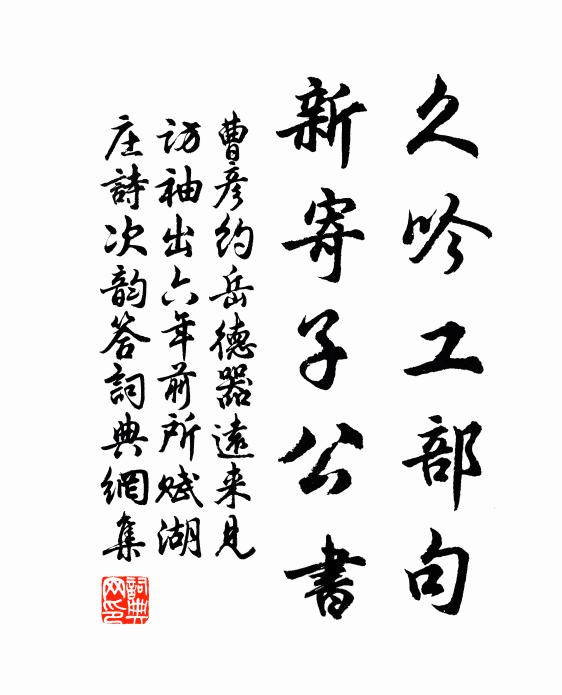 久吟工部句
新寄子公書
曹彦約岳德器遠来見
访袖出六年前所赋湖
庄詩次韵答詞典網集
詞典
网印